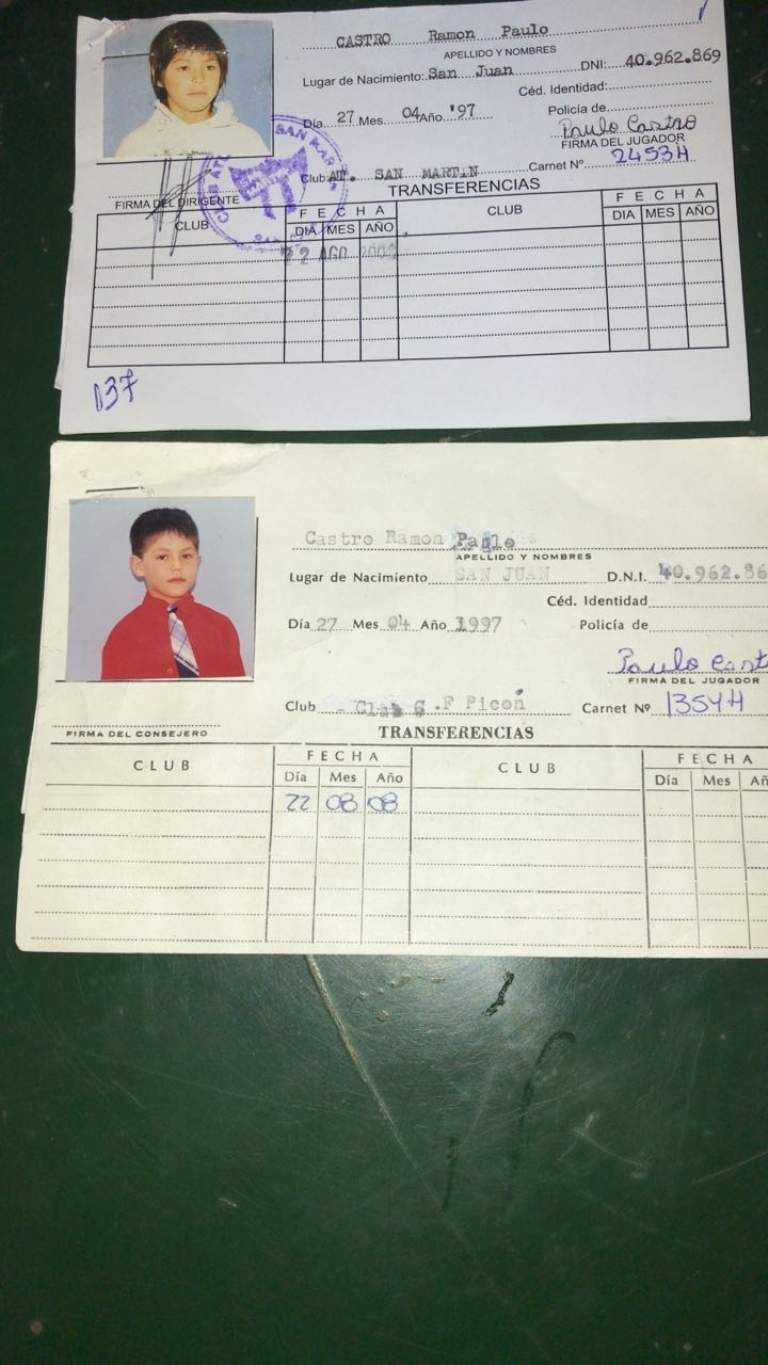 CASTRO Ramon Paulo
APELLIDO Y NOMBRES
Lugar de Nacimiento: San Juan DNI: 40.962.869
Céd. Identidad:
Día 27 Mes 04 Año '97 Policía de
Paulo Castro
FIRMA DEL JUGADOR
Club: AT. SAN MARTIN Carnet Nº 2453H
FIRMA DEL DIRIGENTE
TRANSFERENCIAS
CLUB FECHA CLUB FECHA
DIA MES AÑO DIA MES AÑO
2 AGO
137
Castro Ramon Paulo
APELLIDO Y NOMBRES
Lugar de Nacimiento SAN JUAN D.N.I. 40.962.86
Céd. Identidad
Día 27 Mes 04 Año 1997 Policía de
Paulo Cast
FIRMA DEL JUGADOR
Club F Picón Carnet Nº 1354H
FIRMA DEL CONSEJERO
TRANSFERENCIAS
CLUB FECHA CLUB FECHA
Día Mes Año Día Mes Añ
22 08 08